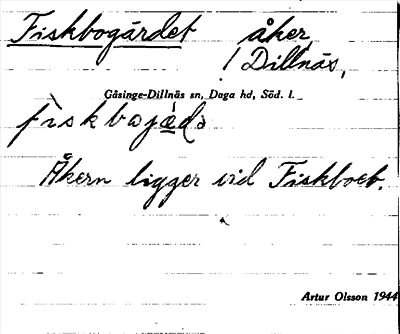 Fiskbogärdet åker,
i Dillnäs,
Gåsinge-Dillnäs sn, Daga hd, Söd. l.
Åkern ligger vid Fiskboeb.
Artur Olsson 1944